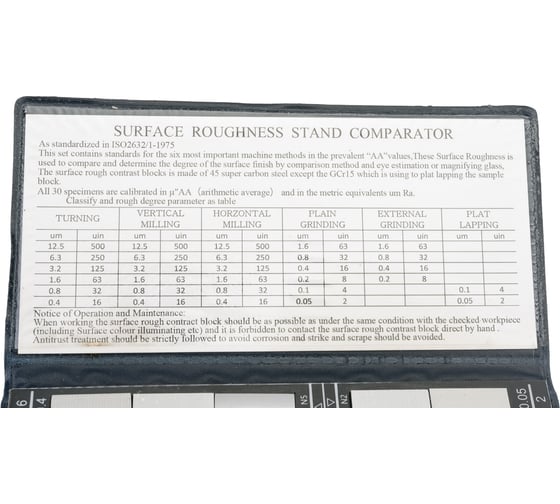 SURFACE ROUGHNESS STAND COMPARATOR
As standardized in ISO2632/1-1975
This set contains standards for the six most important machine methods in the prevalent "AA"values,These Surface Roughness is
used to compare and determine the degree of the surface finish by comparison method and eye estimation or magnifying glass,
The surface rough contrast blocks is made of 45 super carbon steel except the GCr15 which is using to plat lapping the sample
block.
All 30 specimens are calibrated in μ"AA （arithmetic average） and in the metric equivalents um Ra.
Classify and rough degree parameter as table
TURNING VERTICAL MILLING HORZONTAL MILLING PLAIN GRINDING EXTERNAL GRINDING PLAT LAPPING
um uin um uin um uin um uin um uin um uin
12.5 500 12.5 500 12.5 500 1.6 63 1.6 63
6.3 250 6.3 250 6.3 250 0.8 32 0.8 32
3.2 125 3.2 125 3.2 125 0.4 16 0.4 16
1.6 63 1.6 63 1.6 63 0.2 8 0.2 8
0.8 32 0.8 32 0.8 32 0.1 4 0.1 4
0.4 16 0.4 16 0.4 16 0.05 2 0.05 2
Notice of Operation and Maintenance:
When working the surface rough contract block should be as possible as under the same condition with the checked workpiece
(including Surface colour illuminating etc) and it is forbidden to contact the surface rough contrast block direct by hand .
Antitrust treatment should be strictly followed to avoid corrosion and strike and scrape should be avoided.
6
.4
N5
N2
0.05
2